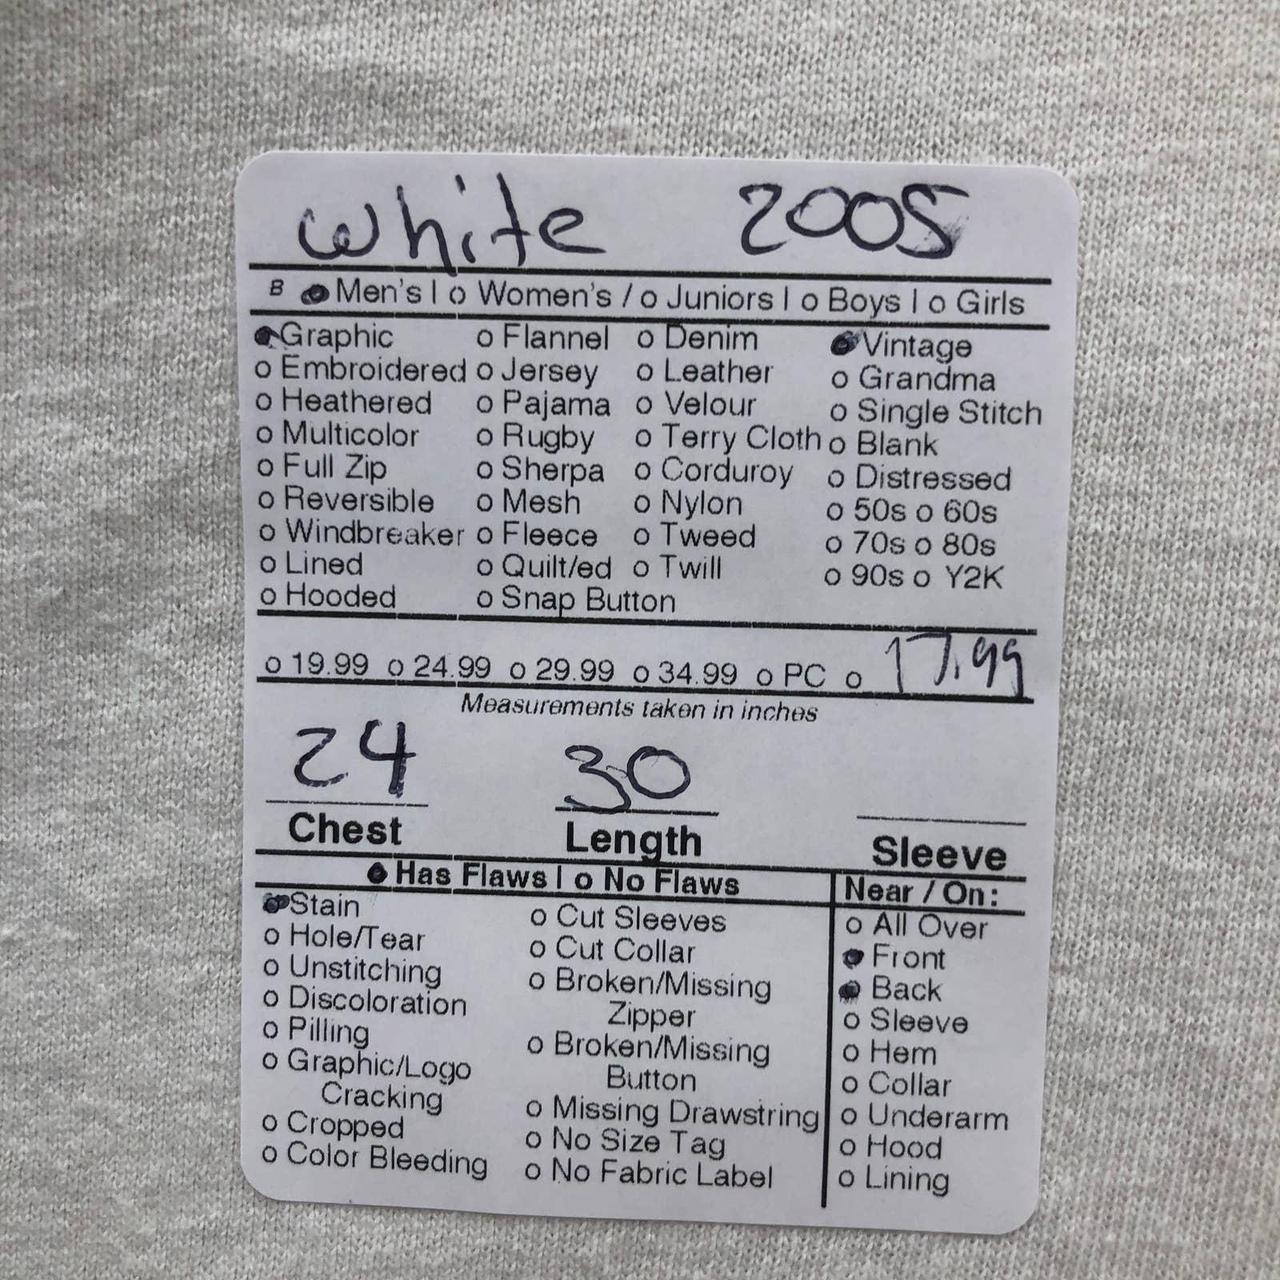 white 2005
B Men's | o Women's / o Juniors | o Boys | o Girls
Graphic o Flannel o Denim Vintage
o Embroidered o Jersey o Leather o Grandma
o Heathered o Pajama o Velour o Single Stitch
o Multicolor o Rugby o Terry Cloth o Blank
o Full Zip o Sherpa o Corduroy o Distressed
o Reversible o Mesh o Nylon o 50s o 60s
o Windbreaker o Fleece o Tweed o 70s o 80s
o Lined o Quilt/ed o Twill o 90s o Y2K
o Hooded o Snap Button
o 19.99 o 24.99 o 29.99 o 34.99 o PC o 17.99
Measurements taken in inches
24 30
Chest Length Sleeve
Has Flaws | o No Flaws
Stain
o Hole/Tear
o Unstitching
o Discoloration
o Pilling
o Graphic/Logo
Cracking
o Cropped
o Color Bleeding
o Cut Sleeves
o Cut Collar
o Broken/Missing
Zipper
o Broken/Missing
Button
o Missing Drawstring
o No Size Tag
o No Fabric Label
Near / On:
o All Over
Front
Back
o Sleeve
o Hem
o Collar
o Underarm
o Hood
o Lining